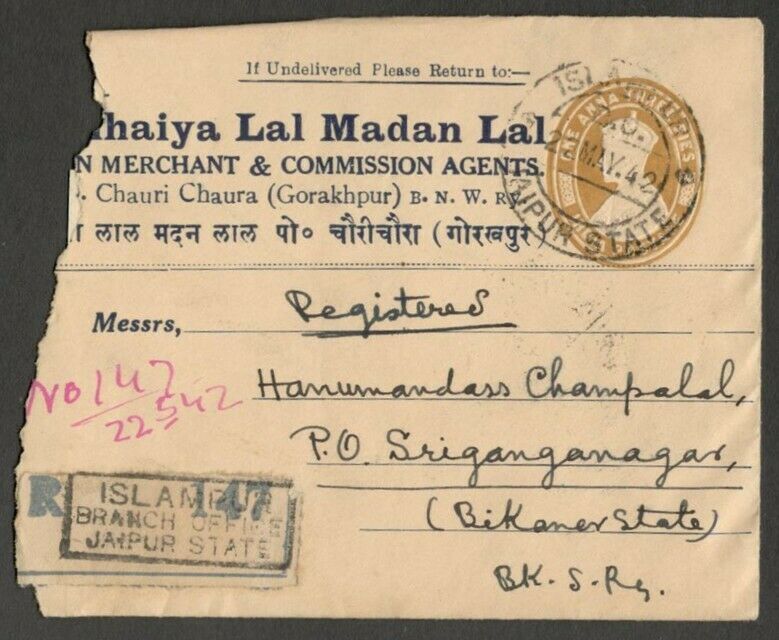 If Undelivered Please Return to:—
haiya Lal Madan Lal
N MERCHANT & COMMISSION AGENTS.
Chauri Chaura (Gorakhpur) B. N. W. Ry
लाल मदन लाल पो० चौरीचौरा (गोरखपुर)
ONE ANNA THREE PIES
ISLA
22 MAY. 42
JAIPUR STATE
Messrs, Registered
No 147
22 5 42
Hanumandass Champalal,
P.O. Sriganganagar,
(Bikaner State)
BK. S. Ry.
R 147
ISLAMPUR
BRANCH OFFICE
JAIPUR STATE